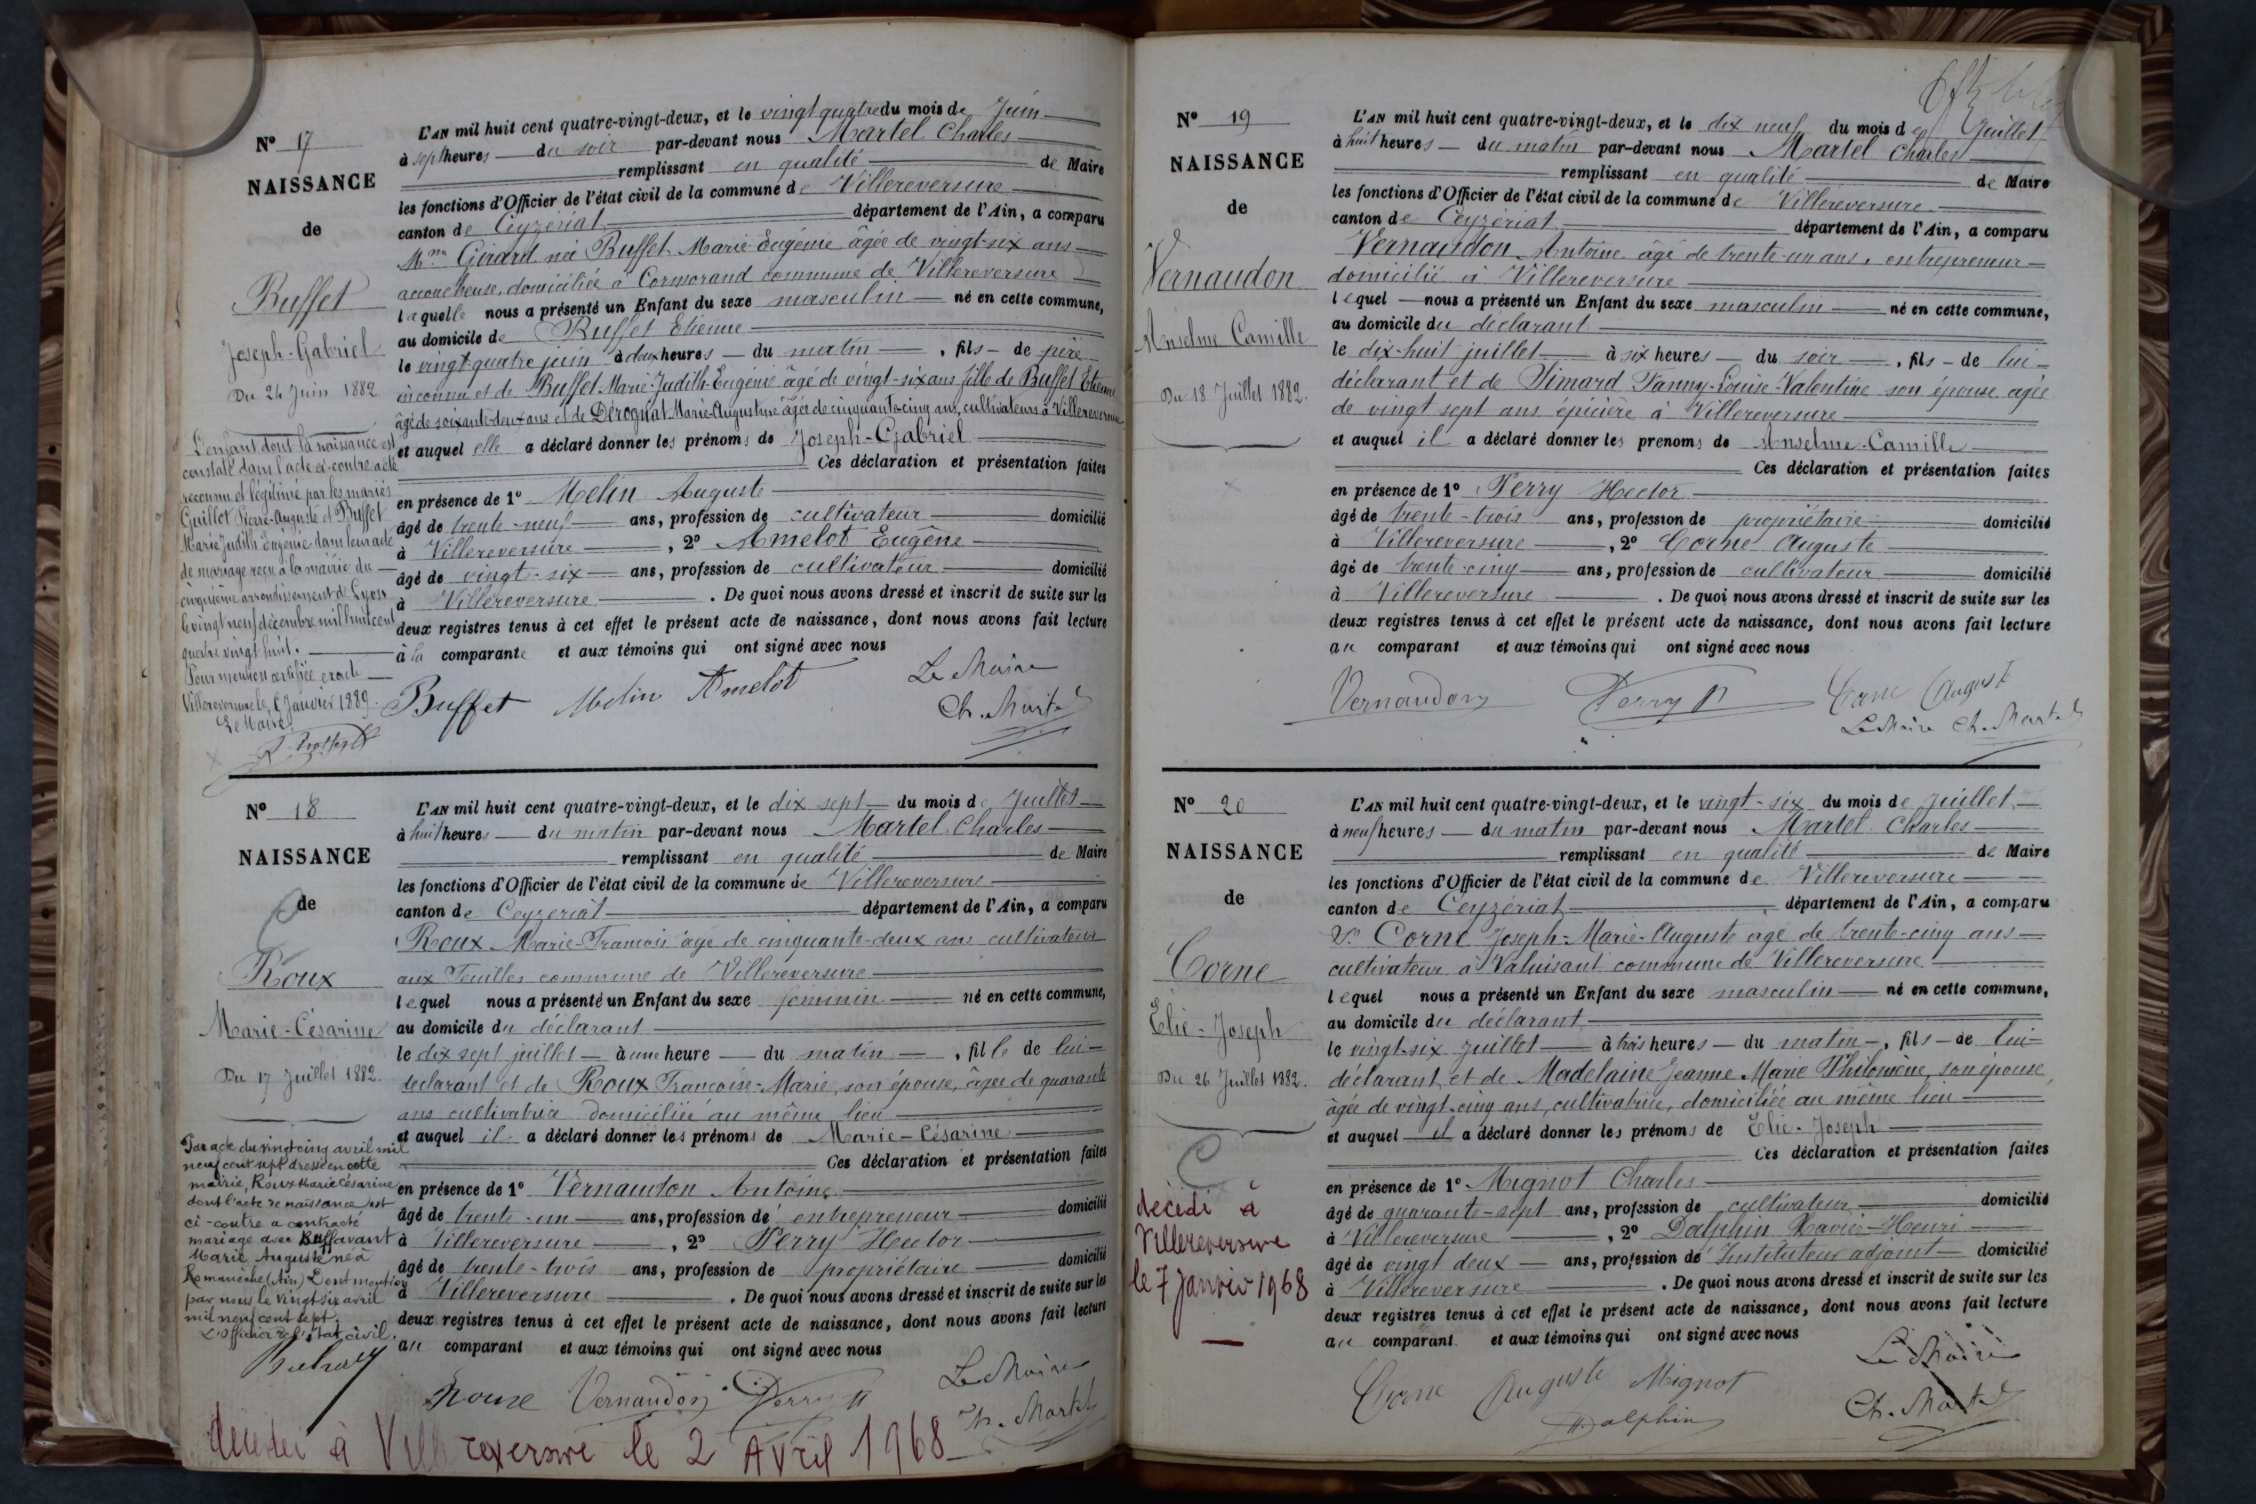 N° 17
NAISSANCE
de
Buffet
Joseph-Gabriel
Du 24 Juin 1882
L'enfant dont la naissance est
constaté dans l'acte ci-contre a été
reconnu et légitimé par les mariés
Guillot Pierre-Auguste et Buffet
Marie Judith Eugénie dans leur acte
de mariage reçu à la mairie du
cinquième arrondissement de Lyon
le vingt neuf décembre mil huit cent
quatre vingt huit.
Pour mention certifiée exacte
Villereversure le 6 Janvier 1889.
Le Maire
L'AN mil huit cent quatre-vingt-deux, et le vingt quatre du mois de Juin
à sept heures du soir par-devant nous Martel Charles
remplissant en qualité de Maire
les fonctions d'Officier de l'état civil de la commune de Villereversure
canton de Ceyzériat département de l'Ain, a comparu
Mme Girard née Buffet Marie Eugénie âgée de vingt-six ans
accoucheuse, domiciliée à Cormorand commune de Villereversure
laquelle nous a présenté un Enfant du sexe masculin né en cette commune,
au domicile de Buffet Etienne
le vingt-quatre juin à deux heures du matin, fils de père
inconnu et de Buffet Marie-Judith-Eugénie âgé de vingt-six ans fille de Buffet Etienne
âgé de soixante-deux ans et de Dérognat Marie-Augustine âgée de cinquante-cinq ans, cultivateurs à Villereversure
et auquel elle a déclaré donner les prénoms de Joseph-Gabriel
Ces déclaration et présentation faites
en présence de 1° Melin Auguste
âgé de trente-neuf ans, profession de cultivateur domicilié
à Villereversure, 2° Amelot Eugène
âgé de vingt-six ans, profession de cultivateur domicilié
à Villereversure. De quoi nous avons dressé et inscrit de suite sur les
deux registres tenus à cet effet le présent acte de naissance, dont nous avons fait lecture
à la comparante et aux témoins qui ont signé avec nous
Buffet Melin Amelot Le Maire
Ch. Martel
N° 18
NAISSANCE
de
Roux
Marie-Césarine
Du 17 Juillet 1882.
Par acte du vingt cinq avril mil
neuf cent sept dressé en cette
mairie, Roux Marie Césarine
dont l'acte de naissance est
ci-contre a contracté
mariage avec Buffavant
Marie Auguste né à
Romanèche (Ain) Dont mention
par nous le vingt six avril
mil neuf cent sept.
L'officier de l'état civil.
L'AN mil huit cent quatre-vingt-deux, et le dix sept du mois de Juillet
à huit heures du matin par-devant nous Martel Charles
remplissant en qualité de Maire
les fonctions d'Officier de l'état civil de la commune de Villereversure
canton de Ceyzeriat département de l'Ain, a comparu
Roux Marie-Francois âgé de cinquante-deux ans cultivateur
aux Feuilles commune de Villereversure
lequel nous a présenté un Enfant du sexe féminin né en cette commune,
au domicile du déclarant
le dix sept juillet à une heure du matin, fille de lui
déclarant et de Roux Francoise-Marie, son épouse, âgée de quarante
ans cultivatrice domiciliée au même lieu
et auquel il a déclaré donner les prénoms de Marie-Césarine
Ces déclaration et présentation faites
en présence de 1° Vernaudon Antoine
âgé de trente-un ans, profession de entrepreneur domicilié
à Villereversure, 2° Perry Hector
âgé de trente-trois ans, profession de propriétaire domicilié
à Villereversure. De quoi nous avons dressé et inscrit de suite sur les
deux registres tenus à cet effet le présent acte de naissance, dont nous avons fait lecture
au comparant et aux témoins qui ont signé avec nous
Roux Vernaudon Perry H Le Maire
Ch. Martel
décédée à Villereversure le 2 Avril 1968
N° 19
NAISSANCE
de
Vernaudon
Anselme Camille
Du 18 Juillet 1882.
L'AN mil huit cent quatre-vingt-deux, et le dix neuf du mois de Juillet
à huit heures du matin par-devant nous Martel Charles
remplissant en qualité de Maire
les fonctions d'Officier de l'état civil de la commune de Villereversure
canton de Ceyzériat département de l'Ain, a comparu
Vernaudon Antoine âgé de trente-un ans, entrepreneur
domicilié à Villereversure
lequel nous a présenté un Enfant du sexe masculin né en cette commune,
au domicile du déclarant
le dix-huit juillet à six heures du soir, fils de lui
déclarant et de Simard Fanny-Louise-Valentine son épouse agée
de vingt sept ans épicière à Villereversure
et auquel il a déclaré donner les prenoms de Anselme-Camille
Ces déclaration et présentation faites
en présence de 1° Perry Hector
âgé de trente-trois ans, profession de propriétaire domicilié
à Villereversure, 2° Corne Auguste
âgé de trente-cinq ans, profession de cultivateur domicilié
à Villereversure. De quoi nous avons dressé et inscrit de suite sur les
deux registres tenus à cet effet le présent acte de naissance, dont nous avons fait lecture
au comparant et aux témoins qui ont signé avec nous
Vernaudon Perry H Corne Auguste
Le Maire Ch. Martel
N° 20
NAISSANCE
de
Corne
Élie-Joseph
Du 26 Juillet 1882.
décédé à
Villereversure
le 7 Janvier 1968
L'AN mil huit cent quatre-vingt-deux, et le vingt-six du mois de Juillet
à neuf heures du matin par-devant nous Martel Charles
remplissant en qualité de Maire
les fonctions d'Officier de l'état civil de la commune de Villereversure
canton de Ceyzériat département de l'Ain, a comparu
Sr Corne Joseph-Marie-Auguste agé de trente-cinq ans
cultivateur à Valuisant commune de Villereversure
lequel nous a présenté un Enfant du sexe masculin né en cette commune,
au domicile du déclarant
le vingt-six Juillet à trois heures du matin, fils de lui
déclarant et de Madelaine Jeanne Marie Philomène, son épouse,
âgée de vingt-cinq ans, cultivatrice, domiciliée au même lieu
et auquel il a déclaré donner les prénoms de Elie-Joseph
Ces déclaration et présentation faites
en présence de 1° Mignot Charles
âgé de quarante-sept ans, profession de cultivateur domicilié
à Villereversure, 2° Dalphin Xavier-Henri
âgé de vingt deux ans, profession de Instituteur adjoint domicilié
à Villereversure. De quoi nous avons dressé et inscrit de suite sur les
deux registres tenus à cet effet le présent acte de naissance, dont nous avons fait lecture
au comparant et aux témoins qui ont signé avec nous
Corne Auguste Mignot Le Maire
H. Dalphin Ch. Martel